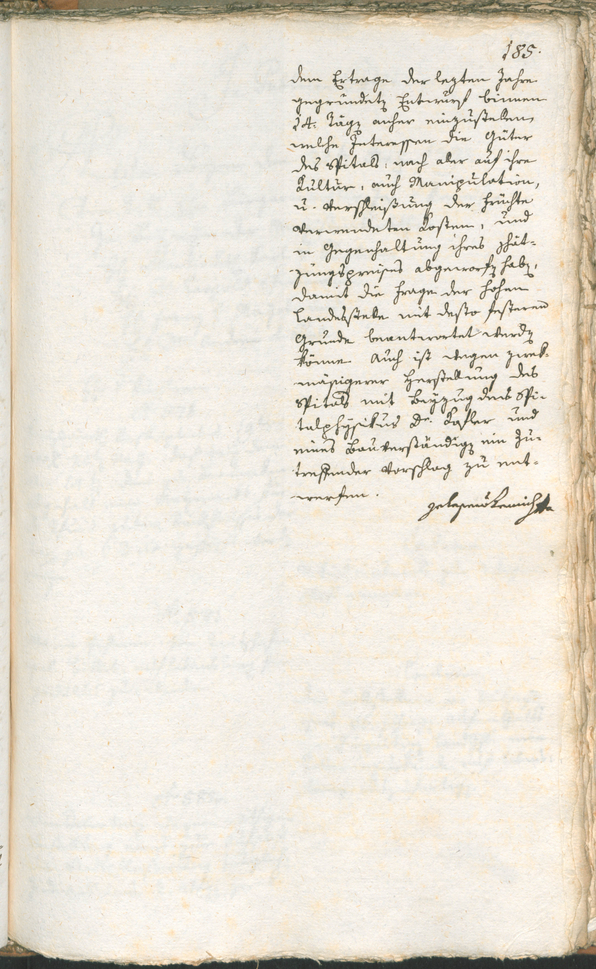 185.
dem Ertrage der lezten Jahre
gegründetz Entwurf binnen
14. Tägz anher einzustellen,
welche Interessen die Güter
des Spitals, nach aller auf ihre
Kultur, auch Manipulation,
u. Verschleißung der Früchte
verwendeten Kosten, und
in Gegenhaltung ihres Schät-
zungspreises abgeworfz habz,
damit die Frage der hohen
Landesstelle mit desto festeren
Grunde beantwortet werdz
könne. Auch ist wegen zwek-
mäsigerer Herstellung des
Spitals mit Beyzug des Spi-
talphysikus Dr. und
eines Bauverständigz ein Zu-
treffender Vorschlag zu ent-
werfen.